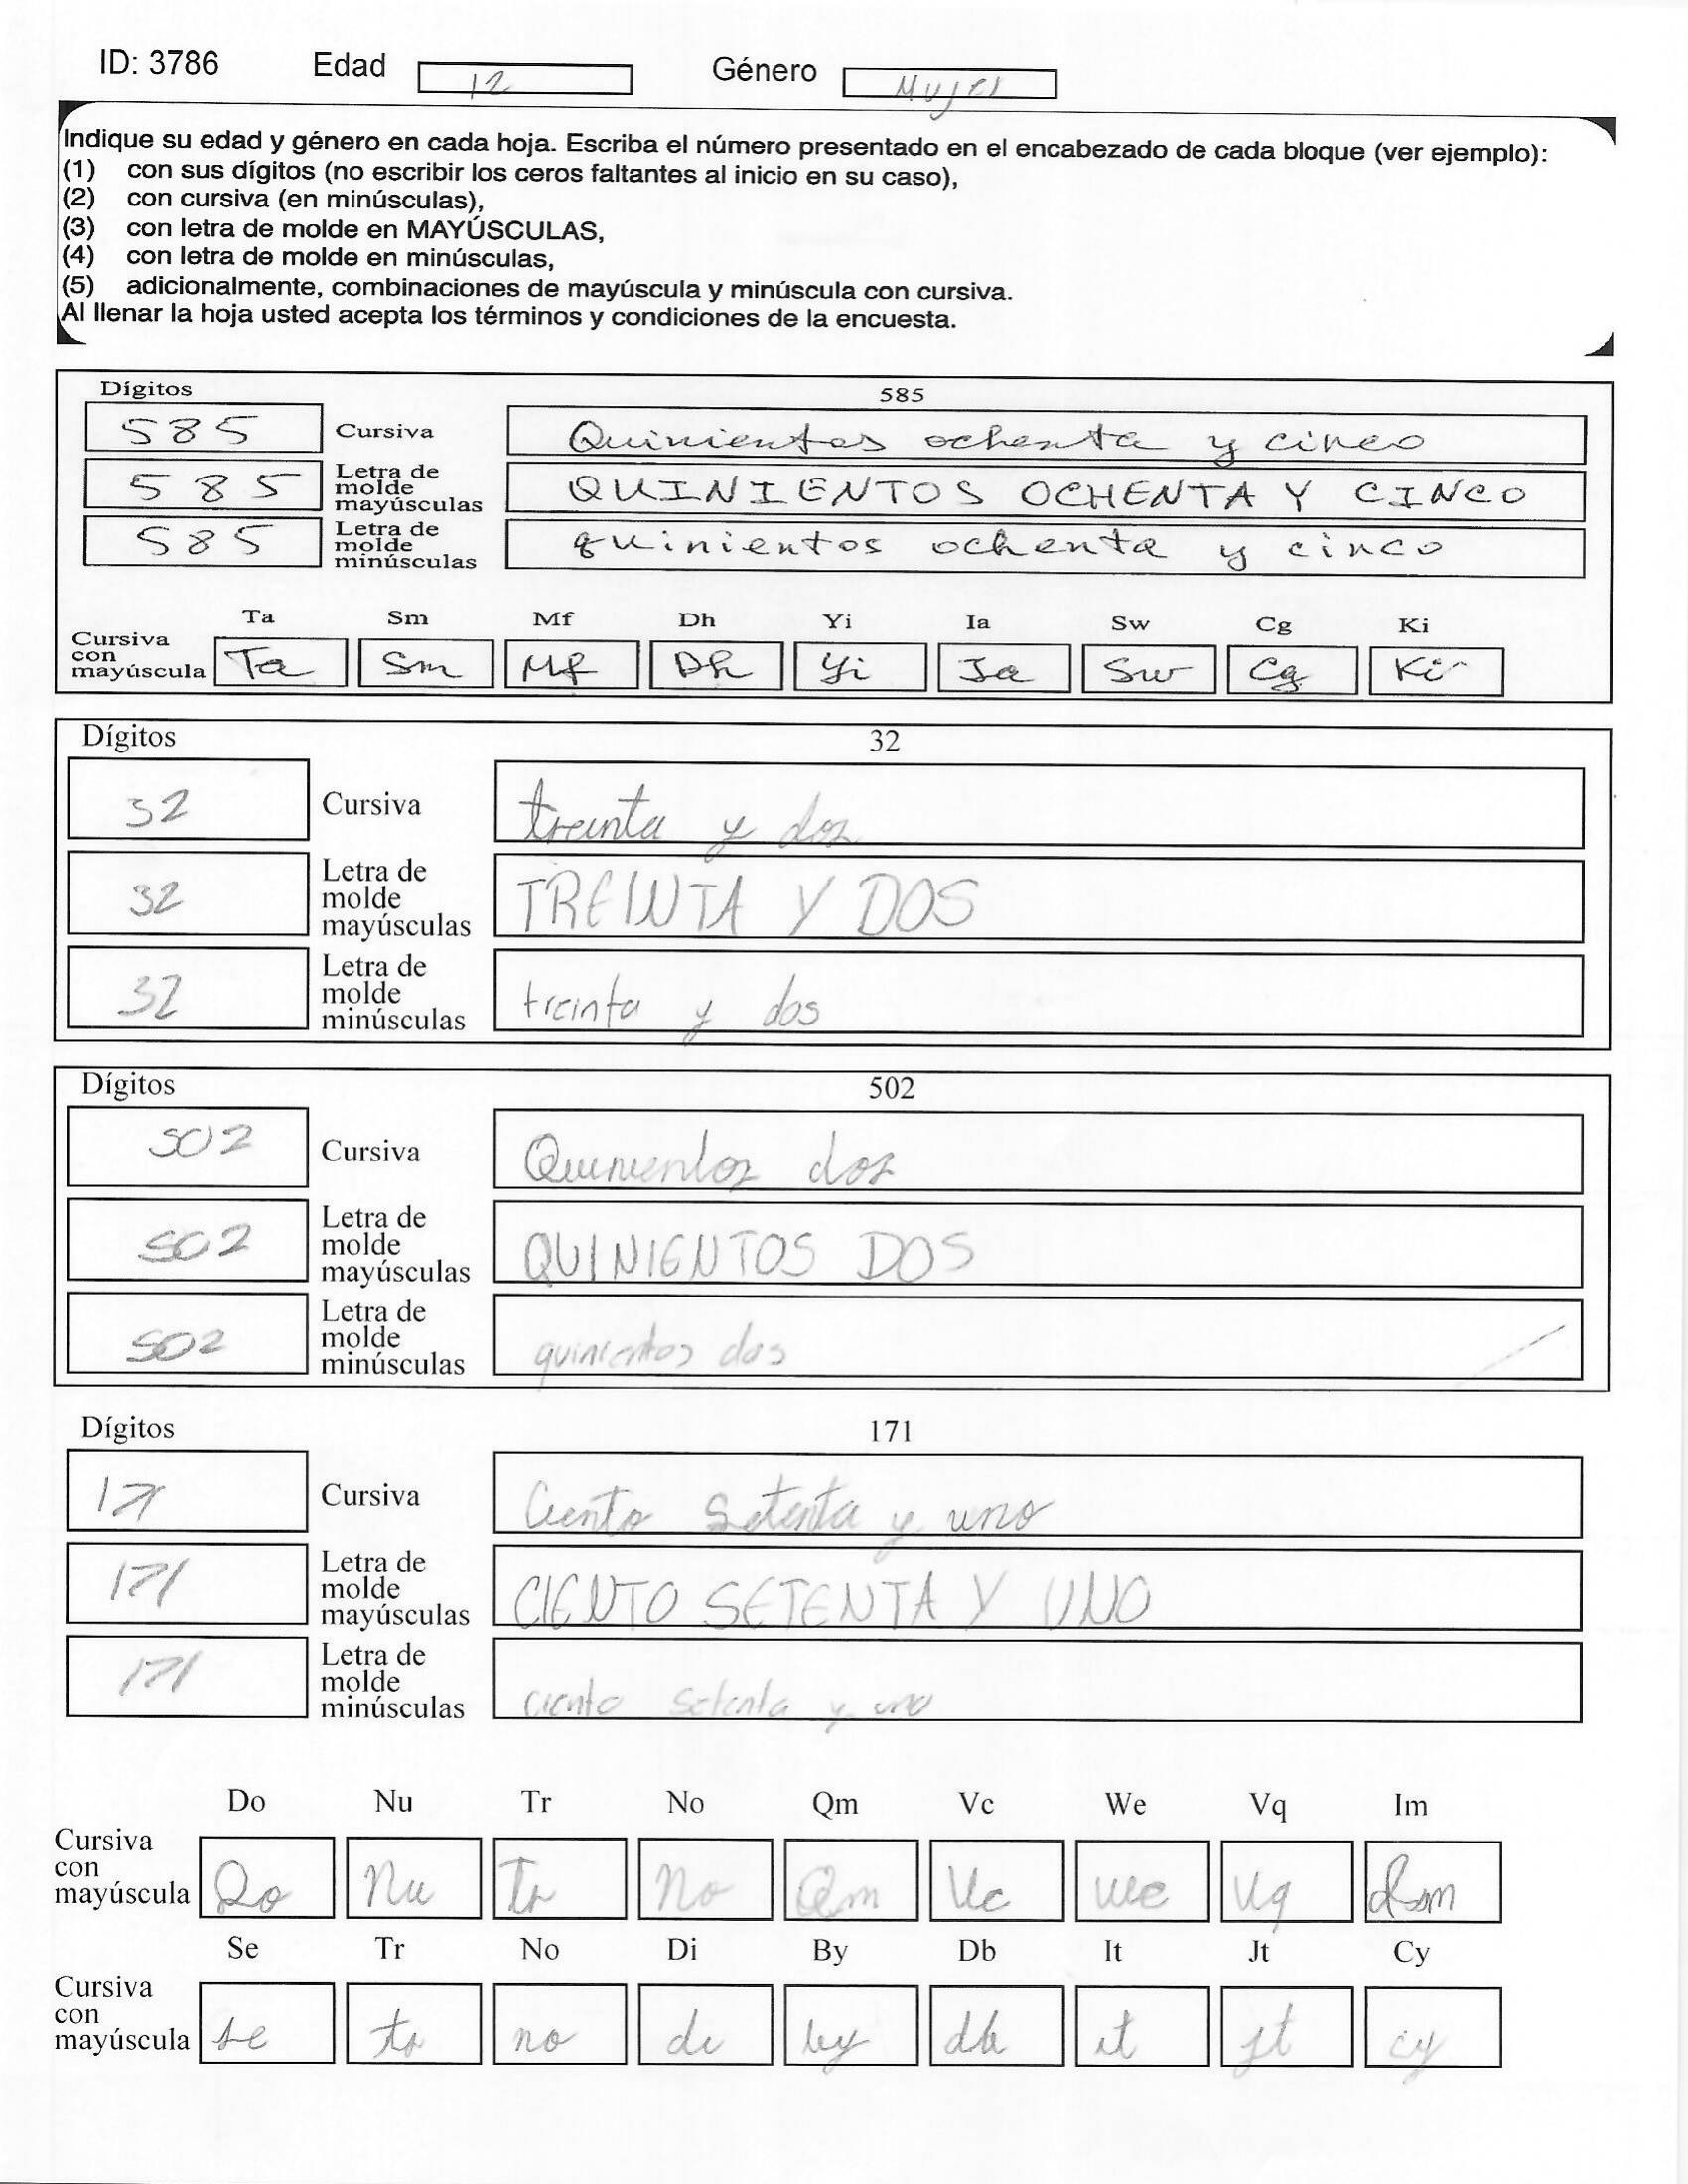 ID: 3786 Edad 12 Género Mujer
Indique su edad y género en cada hoja. Escriba el número presentado en el encabezado de cada bloque (ver ejemplo):
(1) con sus dígitos (no escribir los ceros faltantes al inicio en su caso),
(2) con cursiva (en minúsculas),
(3) con letra de molde en MAYÚSCULAS,
(4) con letra de molde en minúsculas,
(5) adicionalmente, combinaciones de mayúscula y minúscula con cursiva.
Al llenar la hoja usted acepta los términos y condiciones de la encuesta.
Dígitos 585
585 Cursiva Quinientos ochenta y cinco
585 Letra de molde mayúsculas QUINIENTOS OCHENTA Y CINCO
585 Letra de molde minúsculas quinientos ochenta y cinco
Ta Sm Mf Dh Yi Ia Sw Cg Ki
Cursiva con mayúscula Ta Sm Mf Dh Yi Ia Sw Cg Ki
Dígitos 32
32 Cursiva treinta y dos
32 Letra de molde mayúsculas TREINTA Y DOS
32 Letra de molde minúsculas treinta y dos
Dígitos 502
502 Cursiva Quinientos dos
502 Letra de molde mayúsculas QUINIENTOS DOS
502 Letra de molde minúsculas quinientos dos
Dígitos 171
171 Cursiva Ciento Setenta y uno
171 Letra de molde mayúsculas CIENTO SETENTA Y UNO
171 Letra de molde minúsculas ciento setenta y uno
Do Nu Tr No Qm Vc We Vq Im
Cursiva con mayúscula Do Nu Tr No Qm Vc We Vq Im
Se Tr No Di By Db It Jt Cy
Cursiva con mayúscula se tr no di by db it jt cy